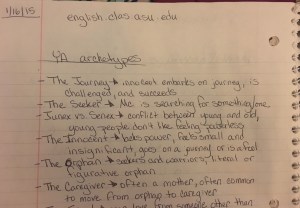 1/16/15
english.clas.asu.edu
YA archetypes
- The Journey → innocent embarks on journey, is
challenged, and succeeds
- The Seeker → MC is searching for something/one
- Junex vs Senex → conflict between young and old,
young people don't like feeling powerless
- The Innocent → lacks power, feels small and
insignificant, goes on a journey or is a fool
- The Orphan → seekers and warriors, literal or
figurative orphan
- The Caregiver → often a mother, often common
to move from orphan to caregiver
love from someone other than